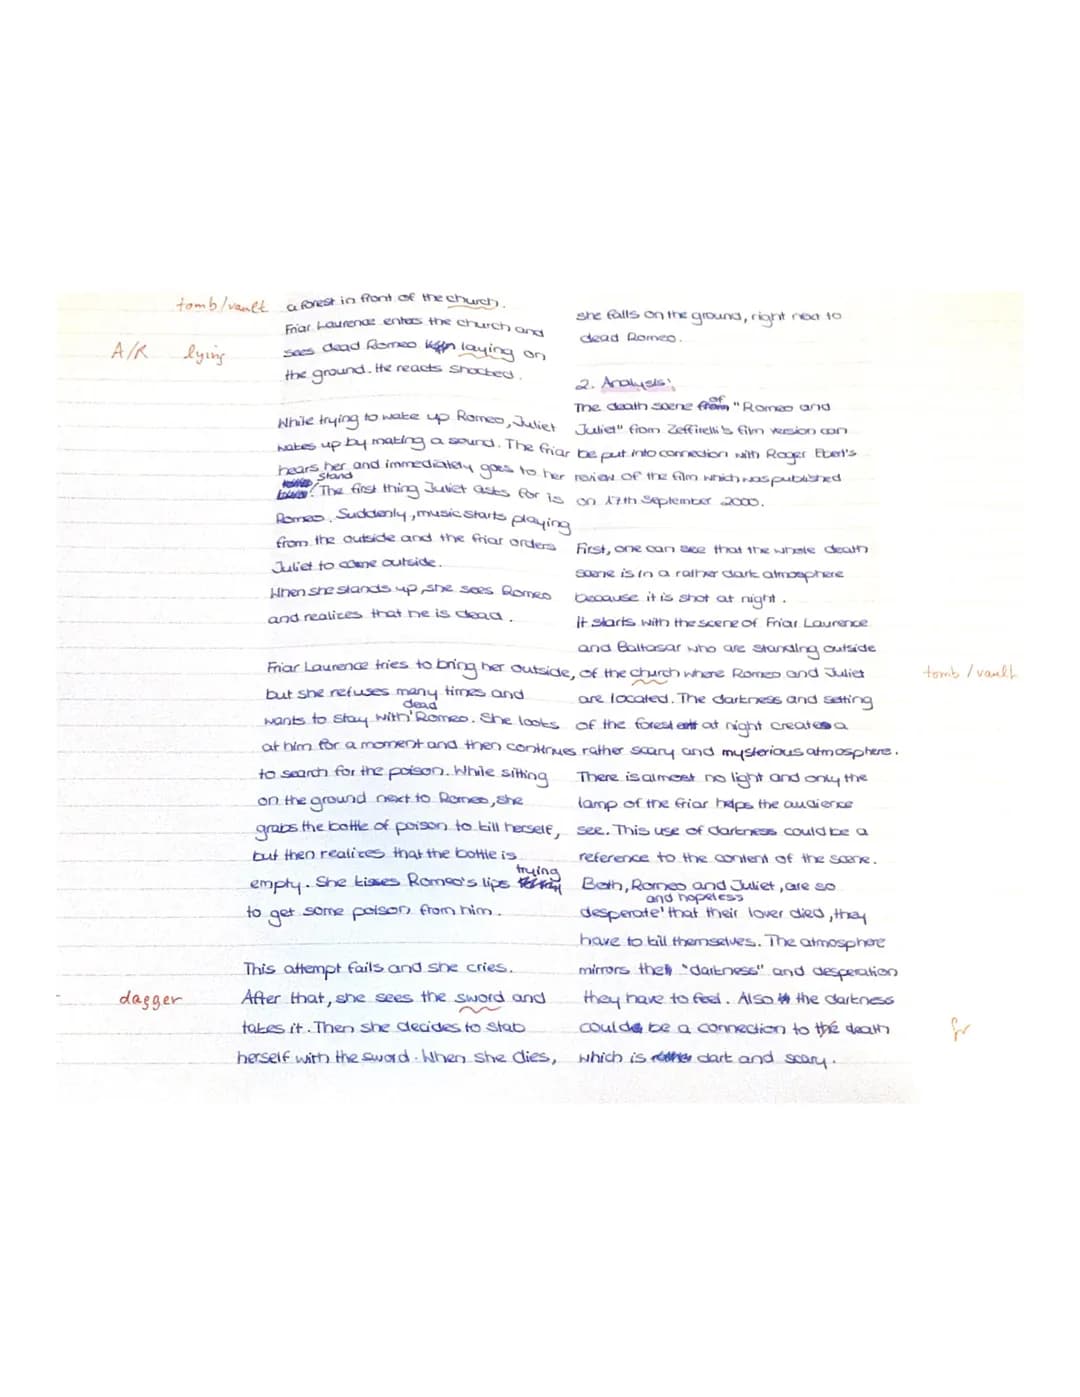 tomb/vault a forest in front of the church.
Friar Laurence enters the church and
A/R lying sees dead Romeo laying on
the ground. He reacts shocked.
While trying to wake up Romeo, Juliet
wakes up by making a sound. The friar
hears her and immediately goes to her
stand
! The first thing Juliet asks for is
Romeo. Suddenly, music starts playing
from the outside and the friar orders
Juliet to come outside.
When she stands up, she sees Romeo
and realizes that he is dead.
Friar Laurence tries to bring her outside,
but she refuses many times and
dead
wants to stay with Romeo. She looks
at him for a moment and then continues
to search for the poison. While sitting
on the ground next to Romeo, she
grabs the bottle of poison to kill herself,
but then realizes that the bottle is
trying
empty. She kisses Romeo's lips
to get some poison from him.
This attempt fails and she cries.
dagger After that, she sees the sword and
takes it. Then she decides to stab
herself with the sword. When she dies,
she falls on the ground, right next to
dead Romeo.
2. Analysis:
of
The death scene "Romeo and
Juliet" from Zeffirelli's film version can
be put into connection with Roger Ebert's
review of the film which was published
on 17th September 2000.
First, one can see that the whole death
scene is in a rather dark atmosphere
because it is shot at night.
It starts with the scene of Friar Laurence
and Baltasar who are standing outside
of the church where Romeo and Juliet tomb/vault
are located. The darkness and setting
of the forest at night creates a
rather scary and mysterious atmosphere.
There is almost no light and only the
lamp of the friar helps the audience
see. This use of darkness could be a
reference to the content of the scene.
Both, Romeo and Juliet, are so
and hopeless
desperate that their lover died, they
have to kill themselves. The atmosphere
mirrors the "darkness" and desperation
they have to feel. Also the darkness
could be a connection to the death
which is dark and scary.